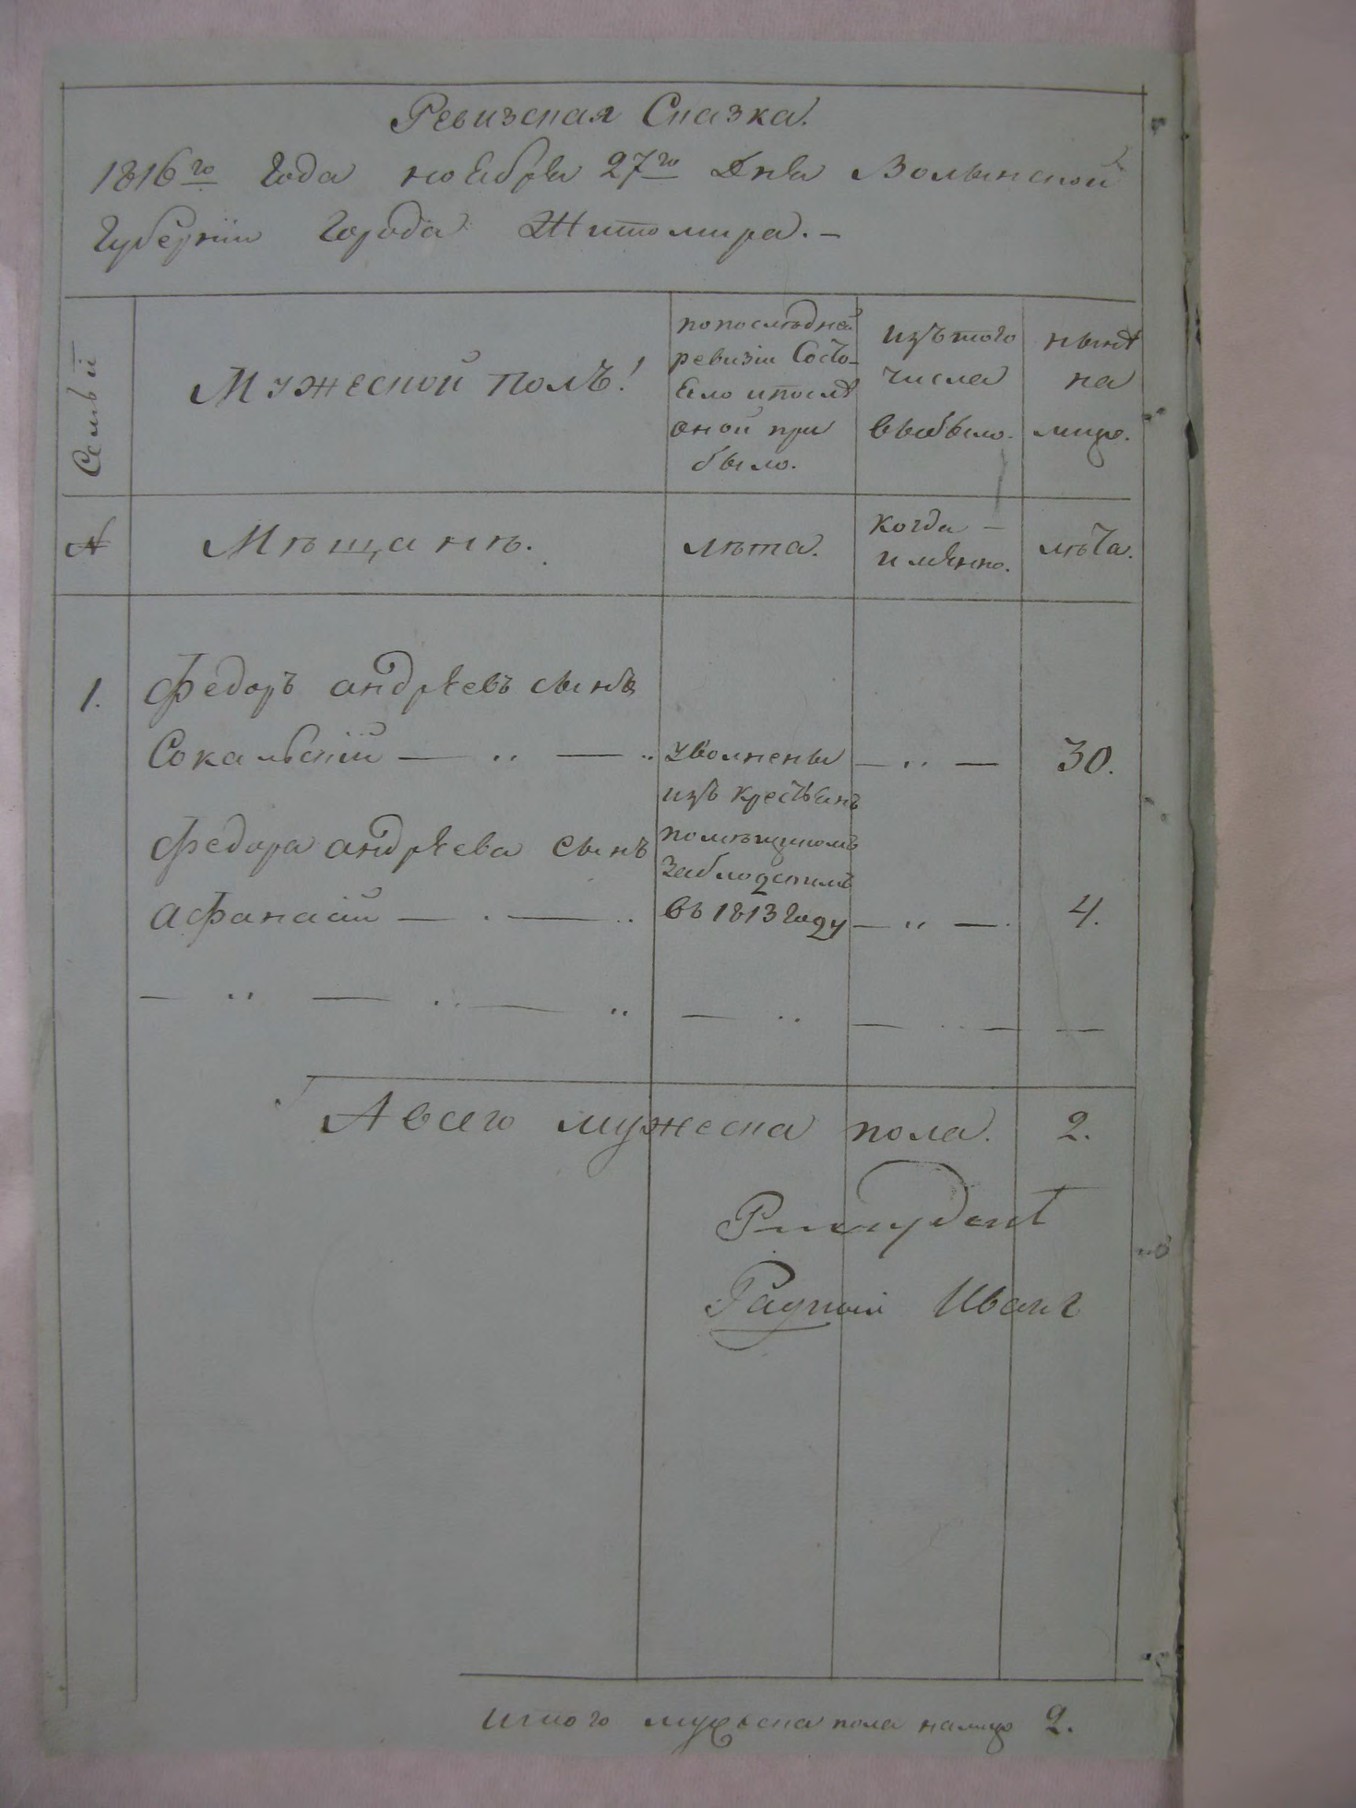 Ревизская Сказка.
1816го Года ноября 27го Дня Волынской
Губернїи Города Житомира. –
Семьи
Мужеской полъ!
попоследней
ревизїи Состо-
яло ипослѣ
оной при
было.
изътого
числа
выбыло.
нынѣ
на
лицо.
№
Мѣщанѣ.
лѣта.
когда –
имянно.
лѣта.
1.
Федоръ андрѣевъ сынъ
Сокальскїй — .. — ..
уволнены
изъ крестьянъ
помѣщикомъ
въ 1813 Году
— .. —
30.
Федора андрѣева сынъ
афанасїй — . — ..
— .. — .
4.
— .. — .. — .. — .. — .. — —
А всего мужеска пола. 2.
Иванъ
Итого мужеска пола налицо 2.